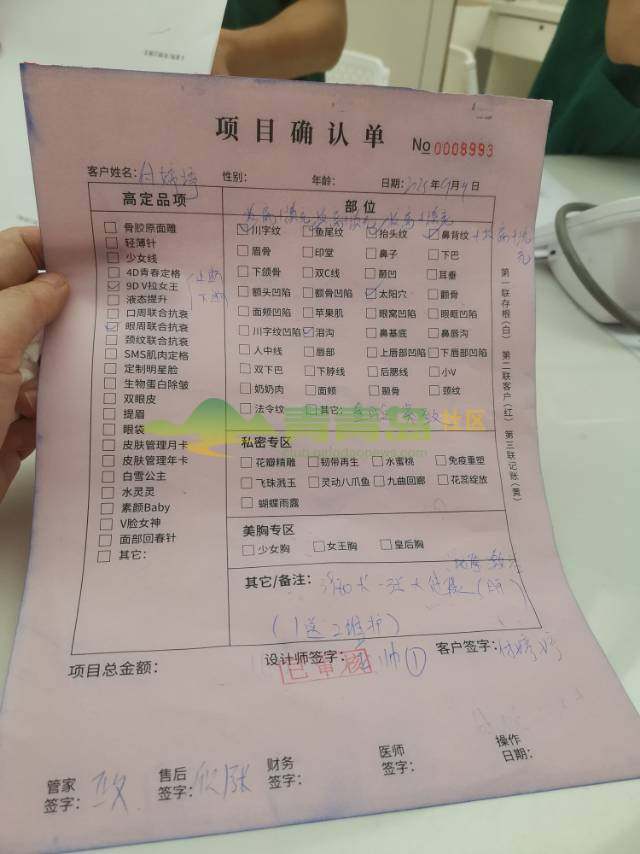 项目确认单
No 0008993
客户姓名:
性别:
年龄:
日期: 年 月 日
高定品项
骨胶原面雕
轻薄针
少女线
4D青春定格
9D V拉女王
液态提升
口周联合抗衰
眼周联合抗衰
颈纹联合抗衰
SMS肌肉定格
定制明星脸
生物蛋白除皱
双眼皮
提眉
眼袋
皮肤管理月卡
皮肤管理年卡
白雪公主
水灵灵
素颜Baby
V脸女神
面部回春针
其它:
部位
川字纹 鱼尾纹 抬头纹 鼻背纹
眉骨 印堂 鼻子 下巴
下颌骨 双C线 颠凹 耳垂
额头凹陷 额骨凹陷 太阳穴 颧骨
面颊凹陷 苹果肌 眼窝凹陷 眼眶凹陷
川字纹凹陷 泪沟 鼻基底 鼻唇沟
人中线 唇部 上唇部凹陷 下唇部凹陷
双下巴 下脖线 后腮线 小V
奶奶肉 面颊 颞骨 颈纹
法令纹 其它:
私密专区
花瓣精雕 韧带再生 水蜜桃 免疫重塑
飞珠溅玉 灵动八爪鱼 九曲回廊 花蕊绽放
蝴蝶雨露
美胸专区
少女胸 女王胸 皇后胸
其它/备注:
(1送2维护)
第一联存根(白) 第二联客户(红) 第三联记账(黄)
项目总金额:
设计师签字:
客户签字:
已审
管家
签字:
售后
签字:
财务
签字:
医师
签字:
操作
日期:
青青岛社区